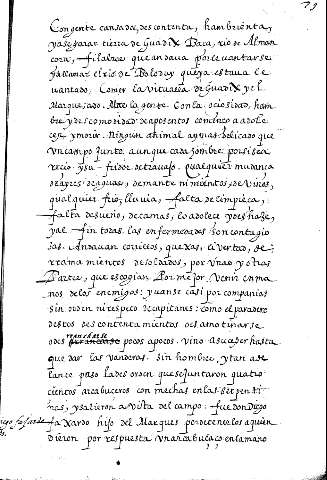 79
Con gente cansada, descontenta, hambrienta,
y asegurar tierra de Guadix Baça, rio de Alman
çora, filabres que andaua por leuantarse
ya llamar el rio de Boloduy que ya estaua le
uantado, Comer la vitualla de Guadix y el
Marquesado. Mas la gente. Con la ociosidad, ham
bre y descomodidad de aposentos començo a adole
cer y morir. Ningun animal ay mas delicado que
vn campo junto aunque cada hombre por si sea
recio y su fridor de trabajo. Qualquier mudança
de ayres, de aguas, de mantenimientos, de vinos,
qualquier frio, lluuia, falta de limpieça,
falta de sueño, de camas, lo adolece y deshaze,
y al fin todas las enfermedades son contagio
sas. Andauan corrillos, quexas, libertad, de-
rramamientos de soldados, por vnas y otras
Partes, que escogian Por mejor. Venir en ma
nos de los enemigos: yuanse casi por compañias
sin orden ni respeto de capitanes: como el paradero
destos descontentamientos o es amotinarse
o desrrancarse pocos a pocos. vino a suceder hasta
que dar las vanderas. Sin hombre, y tan ade
lante paso la desorden que se juntaron quatro
cientos arcabuceros con mechas en las serpenti
nas, y salieron a vista del campo: fue don Diego
faxardo hijo del Marques por detenerlos a quien
dieron por respuesta vn arcabuçaço en la mano